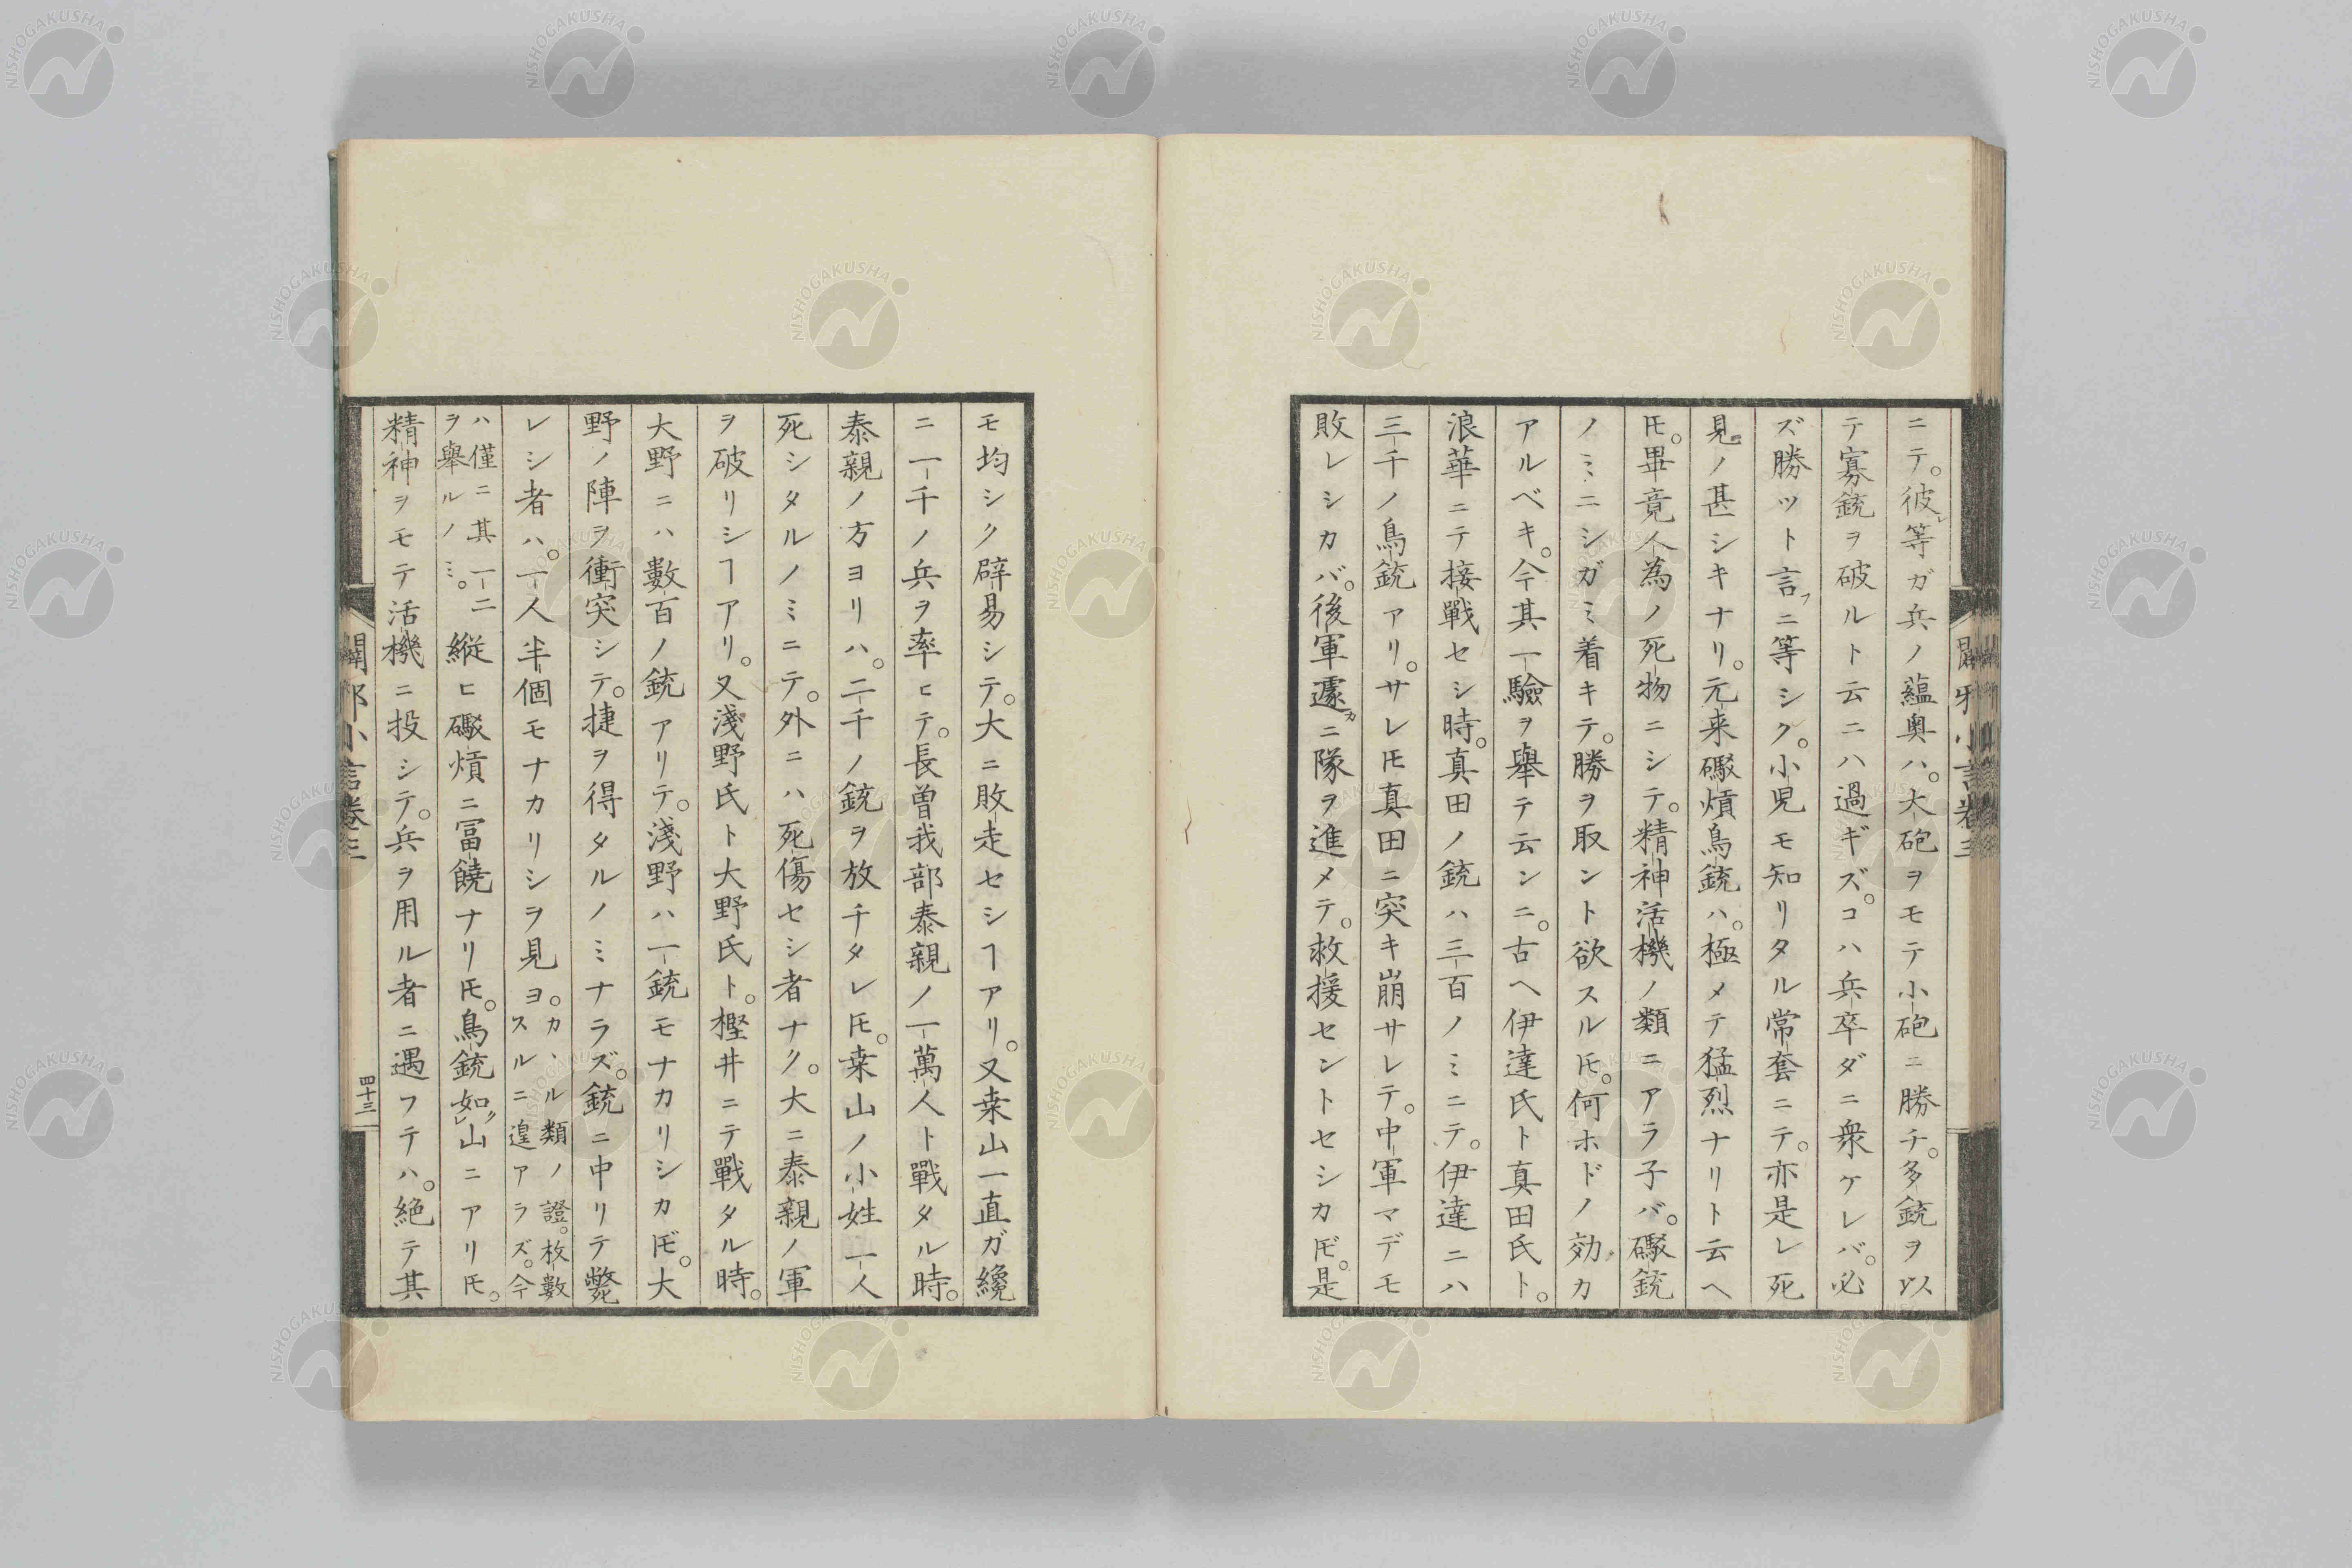 ニテ。彼レ等ガ兵ノ蘊奥ハ。大砲ヲモテ小砲ニ勝チ。多銃ヲ以
テ寡銃ヲ破ルト云ニハ過ギズ。コハ兵卒ダニ衆ケレバ。必
ズ勝ツト言フニ等シク。小児モ知リタル常套ニテ。亦是レ死
見ノ甚シキナリ。元来礮熕鳥銃ハ。極メテ猛烈ナリト云ヘ
𪜈。畢竟人為ノ死物ニシテ。精神活機ノ類ニアラ子バ。礮銃
ノミニシガミ着キテ。勝ヲ取ント欲スル𪜈。何ホドノ効カ
アルベキ。今其一驗ヲ擧テ云ンニ。古ヘ伊達氏ト真田氏ト。
浪華ニテ接戰セシ時。真田ノ銃ハ三百ノミニテ。伊達ニハ
三千ノ鳥銃アリ。サレ𪜈真田ニ突キ崩サレテ。中軍マデモ
敗レシカバ。後軍遽カニ隊ヲ進メテ。救援セントセシカ𪜈。是
モ均シク辟易シテ。大ニ敗走セシヿアリ。又桒山一直ガ纔
ニ一千ノ兵ヲ率ヒテ。長曽我部泰親ノ一萬人ト戰タル時。
泰親ノ方ヨリハ。二千ノ銃ヲ放チタレ𪜈。桒山ノ小姓一人
死シタルノミニテ。外ニハ死傷セシ者ナク。大ニ泰親ノ軍
ヲ破リシヿアリ。又淺野氏ト大野氏ト。樫井ニテ戰タル時。
大野ニハ數百ノ銃アリテ。淺野ハ一銃モナカリシカ𪜈。大
野ノ陣ヲ衝突シテ。捷ヲ得タルノミナラズ。銃ニ中リテ斃
レシ者ハ。一人半個モナカリシヲ見ヨ。カヽル類ノ證。枚數スルニ遑アラズ。今
ハ僅ニ其一二ヲ擧ルノミ。縱ヒ礮熕ニ冨饒ナリ𪜈。鳥銃如クレ山ニアリ𪜈。
精神ヲモテ活機ニ投シテ。兵ヲ用ル者ニ遇フテハ。絶テ其
闢邪小言卷三
四十三